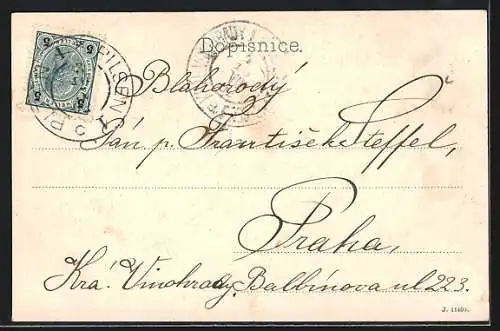 Dopisnice.
PILSEN
Blahorodý
Pán p. František Steffel,
Praha,
Král. Vinohrady, Balbínova ul 223.
J. 1140.